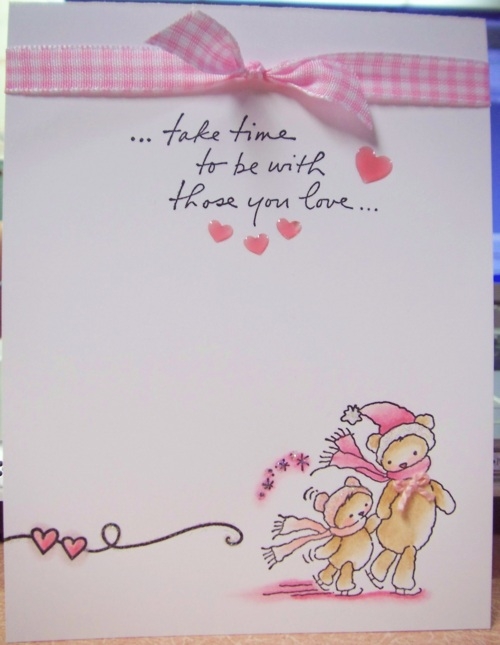 ... take time
to be with
those you love...